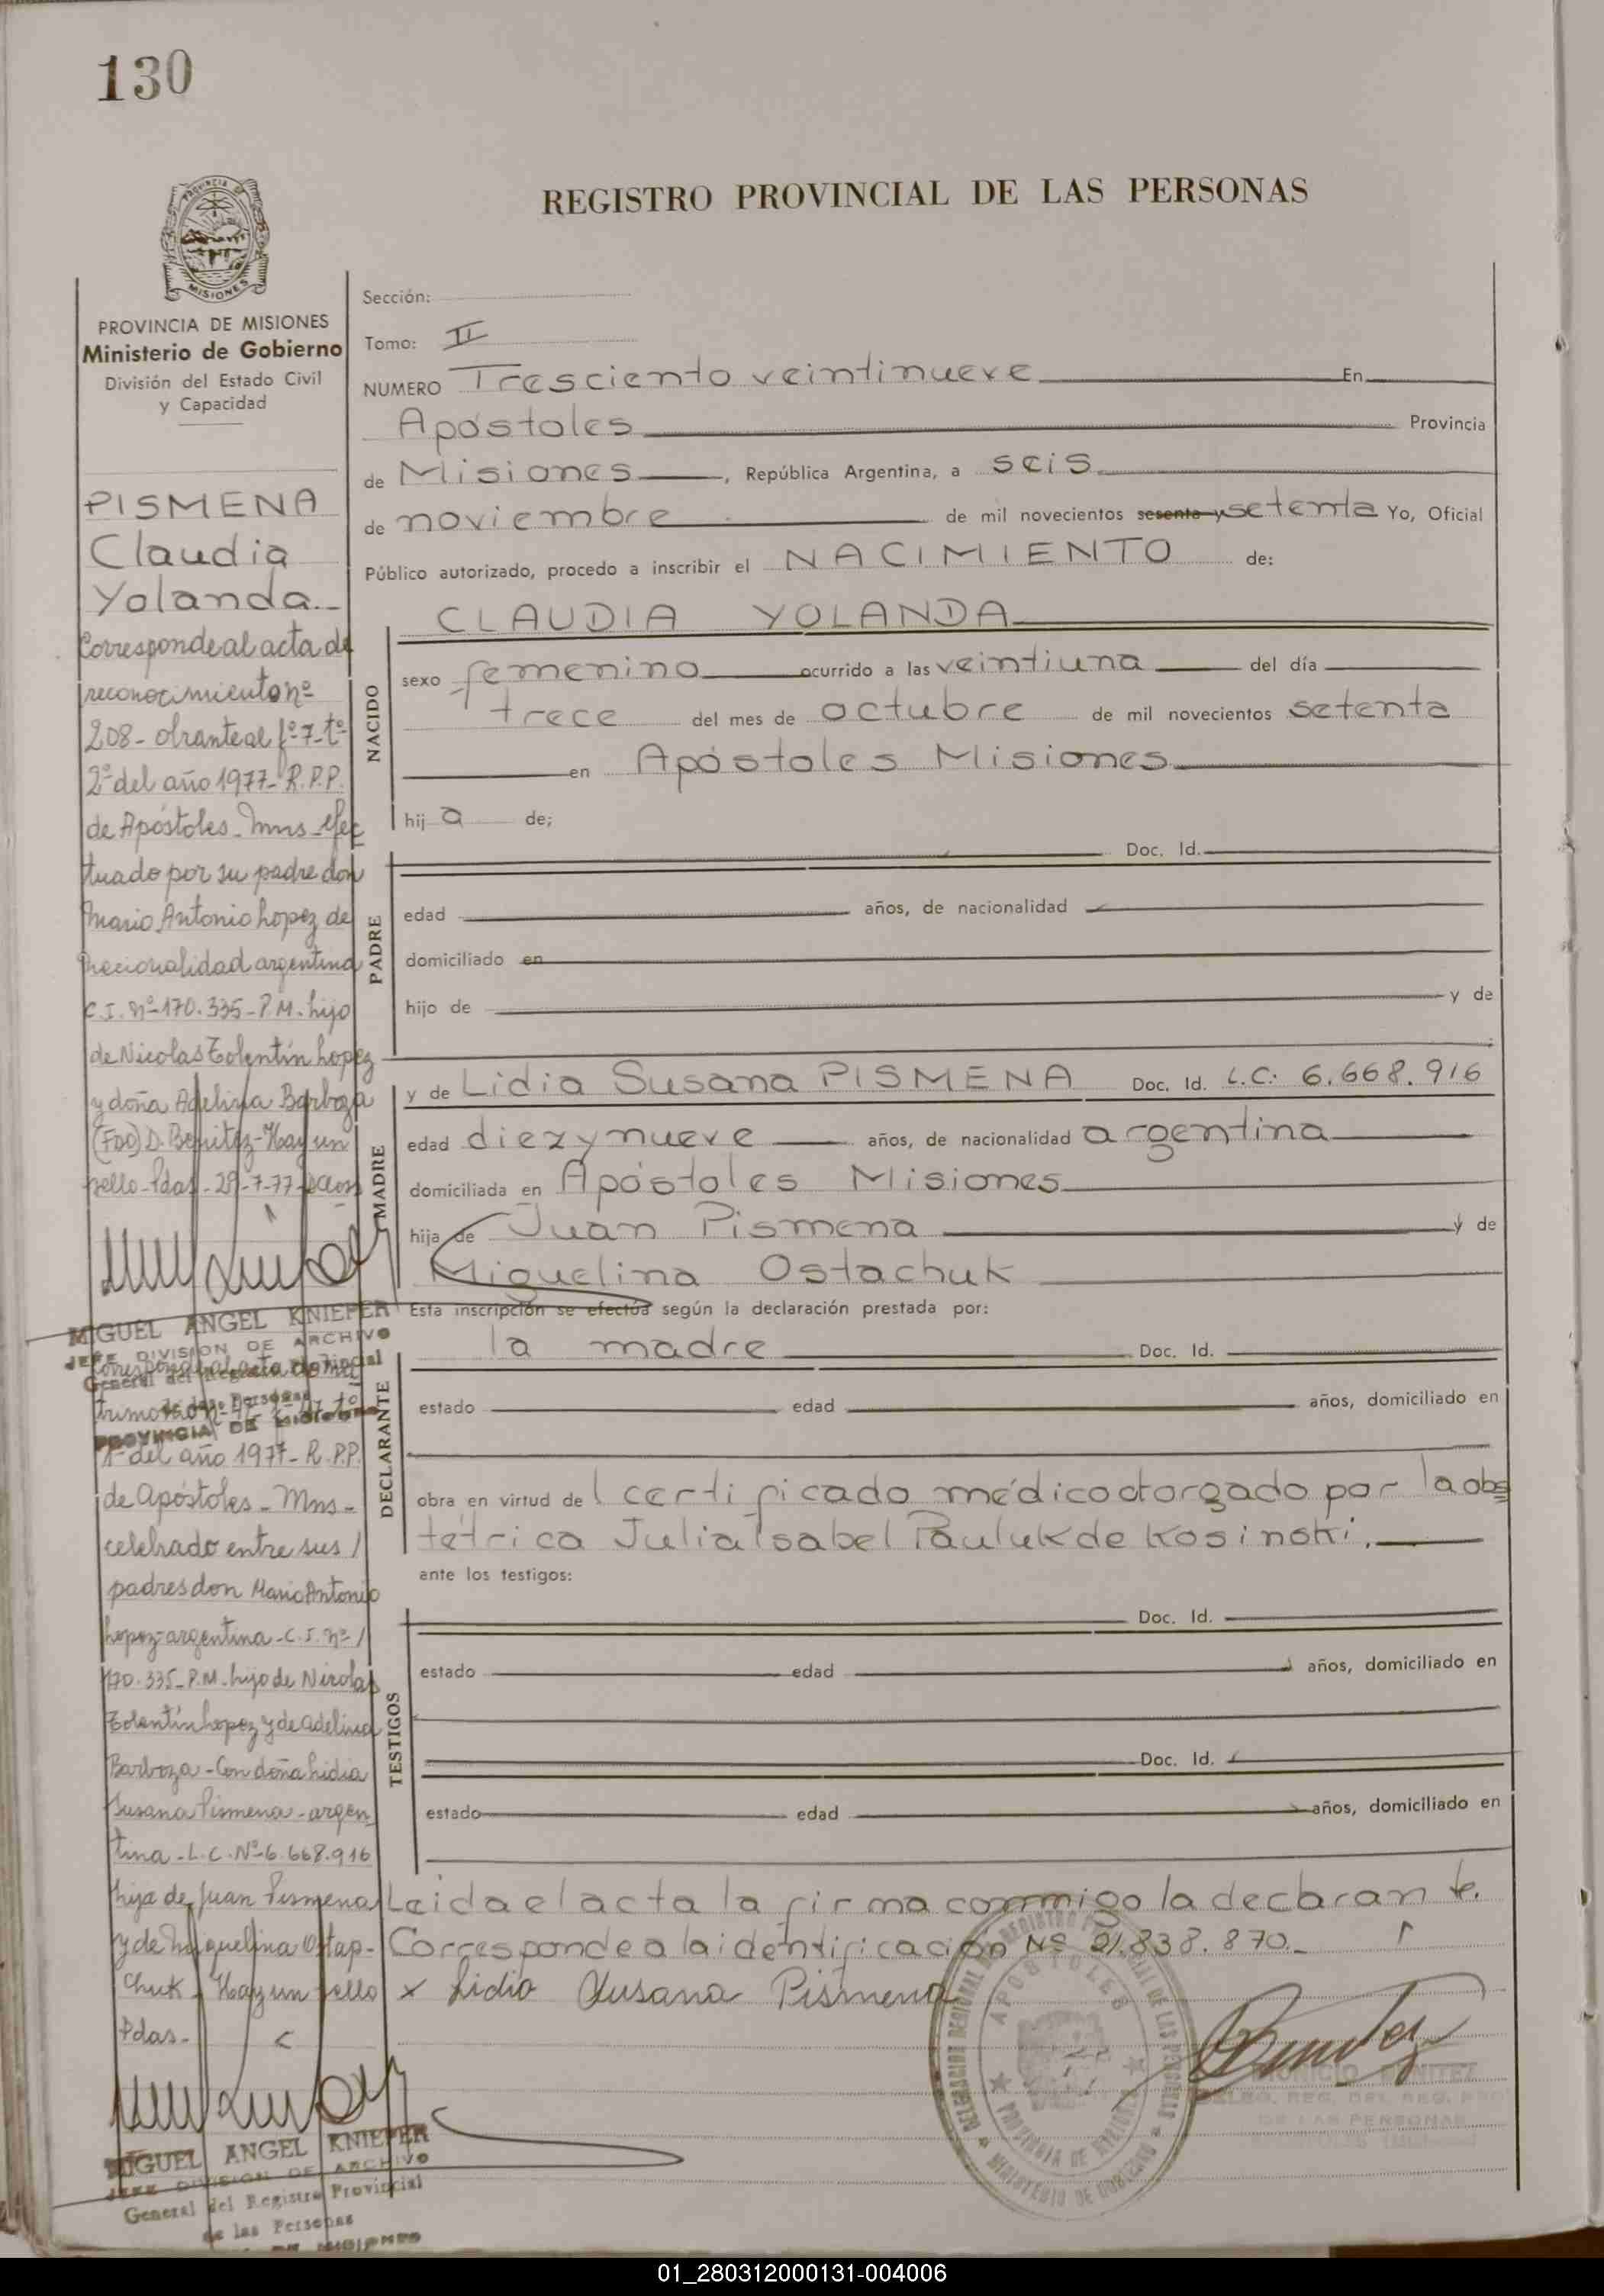 130
REGISTRO PROVINCIAL DE LAS PERSONAS
MISIONES
PROVINCIA DE MISIONES
Ministerio de Gobierno
División del Estado Civil
y Capacidad
PISMENA
Claudia
Yolanda
Corresponde al acta de
reconocimiento nº
208 - obrante al fº 7 - tº
2º del año 1977 - R.P.P.
de Apóstoles - Mns - efec
tuado por su padre don
Mario Antonio Lopez de
nacionalidad argentina
C.I. nº 170.335 - P.M. hijo
de Nicolas Tolentín Lopez
y doña Adelina Barboza
(Fdo) D. Benitez - Hay un
sello - Pdas - 29-7-77
MIGUEL ANGEL KNIEPER
JEFE DIVISION DE ARCHIVO
General del Registro Provincial
de las Personas
PROVINCIA DE MISIONES
Corresponde al acta de ma
trimonio
1º del año 1977 - R.P.P.
de Apóstoles - Mns -
celebrado entre sus /
padres don Mario Antonio
Lopez - argentina - C.I. nº /
170.335 - P.M. hijo de Nicolas
Tolentín Lopez y de Adelina
Barboza - Con doña Lidia
Susana Pismena - argen
tina - L.C. Nº 6.668.916
hija de Juan Pismena
y de Miguelina Ostap-
chuk - Hay un sello
Pdas -
MIGUEL ANGEL KNIEPER
JEFE DIVISION DE ARCHIVO
General del Registro Provincial
de las Personas
Sección:
Tomo: II
NUMERO Tresciento veintinueve En
Apóstoles Provincia
de Misiones, República Argentina, a seis
de noviembre de mil novecientos sesenta y setenta Yo, Oficial
Público autorizado, procedo a inscribir el NACIMIENTO de:
NACIDO
CLAUDIA YOLANDA
sexo femenino ocurrido a las veintiuna del día
trece del mes de octubre de mil novecientos setenta
en Apóstoles Misiones
hij a de;
PADRE
Doc. Id.
edad años, de nacionalidad
domiciliado en
hijo de y de
MADRE
y de Lidia Susana PISMENA Doc. Id. L.C: 6.668.916
edad diez y nueve años, de nacionalidad argentina
domiciliada en Apóstoles Misiones
hija de Juan Pismena y de
Miguelina Ostachuk
Esta inscripción se efectúa según la declaración prestada por:
DECLARANTE
la madre Doc. Id.
estado edad años, domiciliado en
obra en virtud de l certificado médico otorgado por la obs
tétrica Julia Isabel Pauluk de Kosinski.
ante los testigos:
TESTIGOS
Doc. Id.
estado edad años, domiciliado en
Doc. Id.
estado edad años, domiciliado en
Leida el acta la firma conmmigo la declarante.
Corresponde a la identificación Nº 21.838.870.-
x Lidia Susana Pismena
DELEGACION REGIONAL DEL REGISTRO PROVINCIAL DE LAS PERSONAS
APOSTOLES
PROVINCIA DE MISIONES
MINISTERIO DE GOBIERNO
BENITEZ
DE LAS PERSONAS
01_280312000131-004006